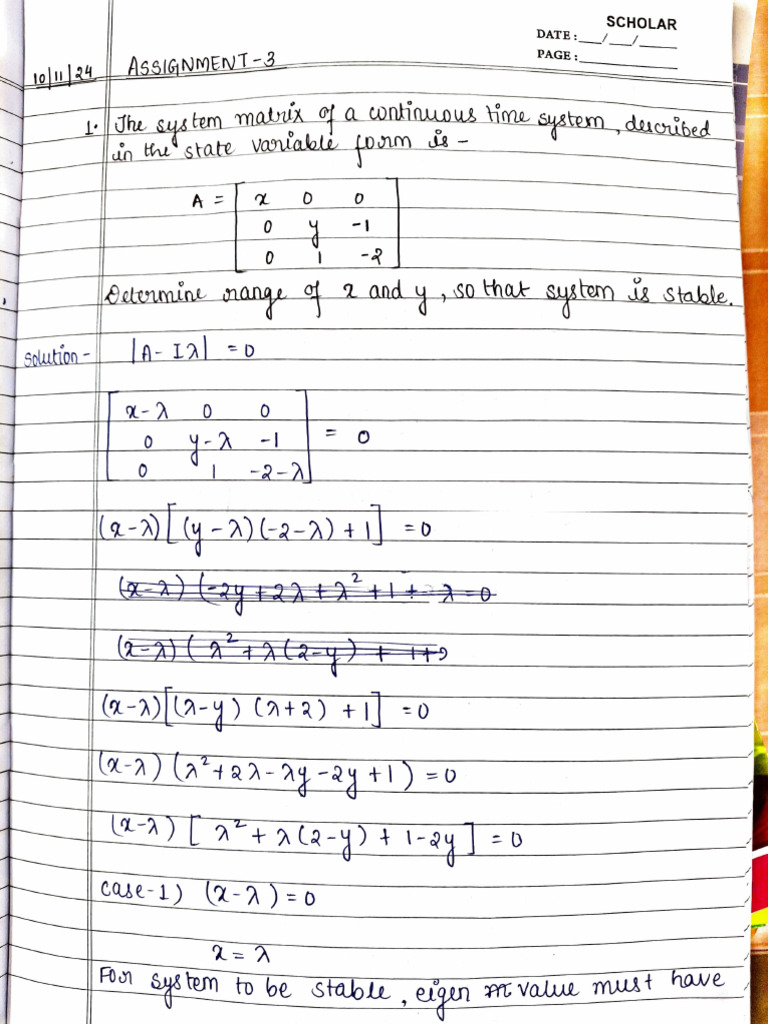 SCHOLAR
DATE:__/__/____
PAGE:________
10/11/24 ASSIGNMENT-3
1. The system matrix of a continuous time system, described
in the state variable form is -
A = [ x 0 0
0 y -1
0 1 -2 ]
Determine range of x and y, so that system is stable.
Solution - |A - Iλ| = 0
[ x-λ 0 0
0 y-λ -1 = 0
0 1 -2-λ ]
(x-λ)[(y-λ)(-2-λ)+1] = 0
(x-λ)(-2y+2λ+λ²+1+ λ=0
(x-λ)(λ²+λ(2-y)+1+
(x-λ)[(λ-y)(λ+2)+1] = 0
(x-λ)(λ²+2λ-λy-2y+1) = 0
(x-λ)[λ²+λ(2-y)+1-2y] = 0
case-1) (x-λ) = 0
x = λ
For system to be stable, eigen value must have